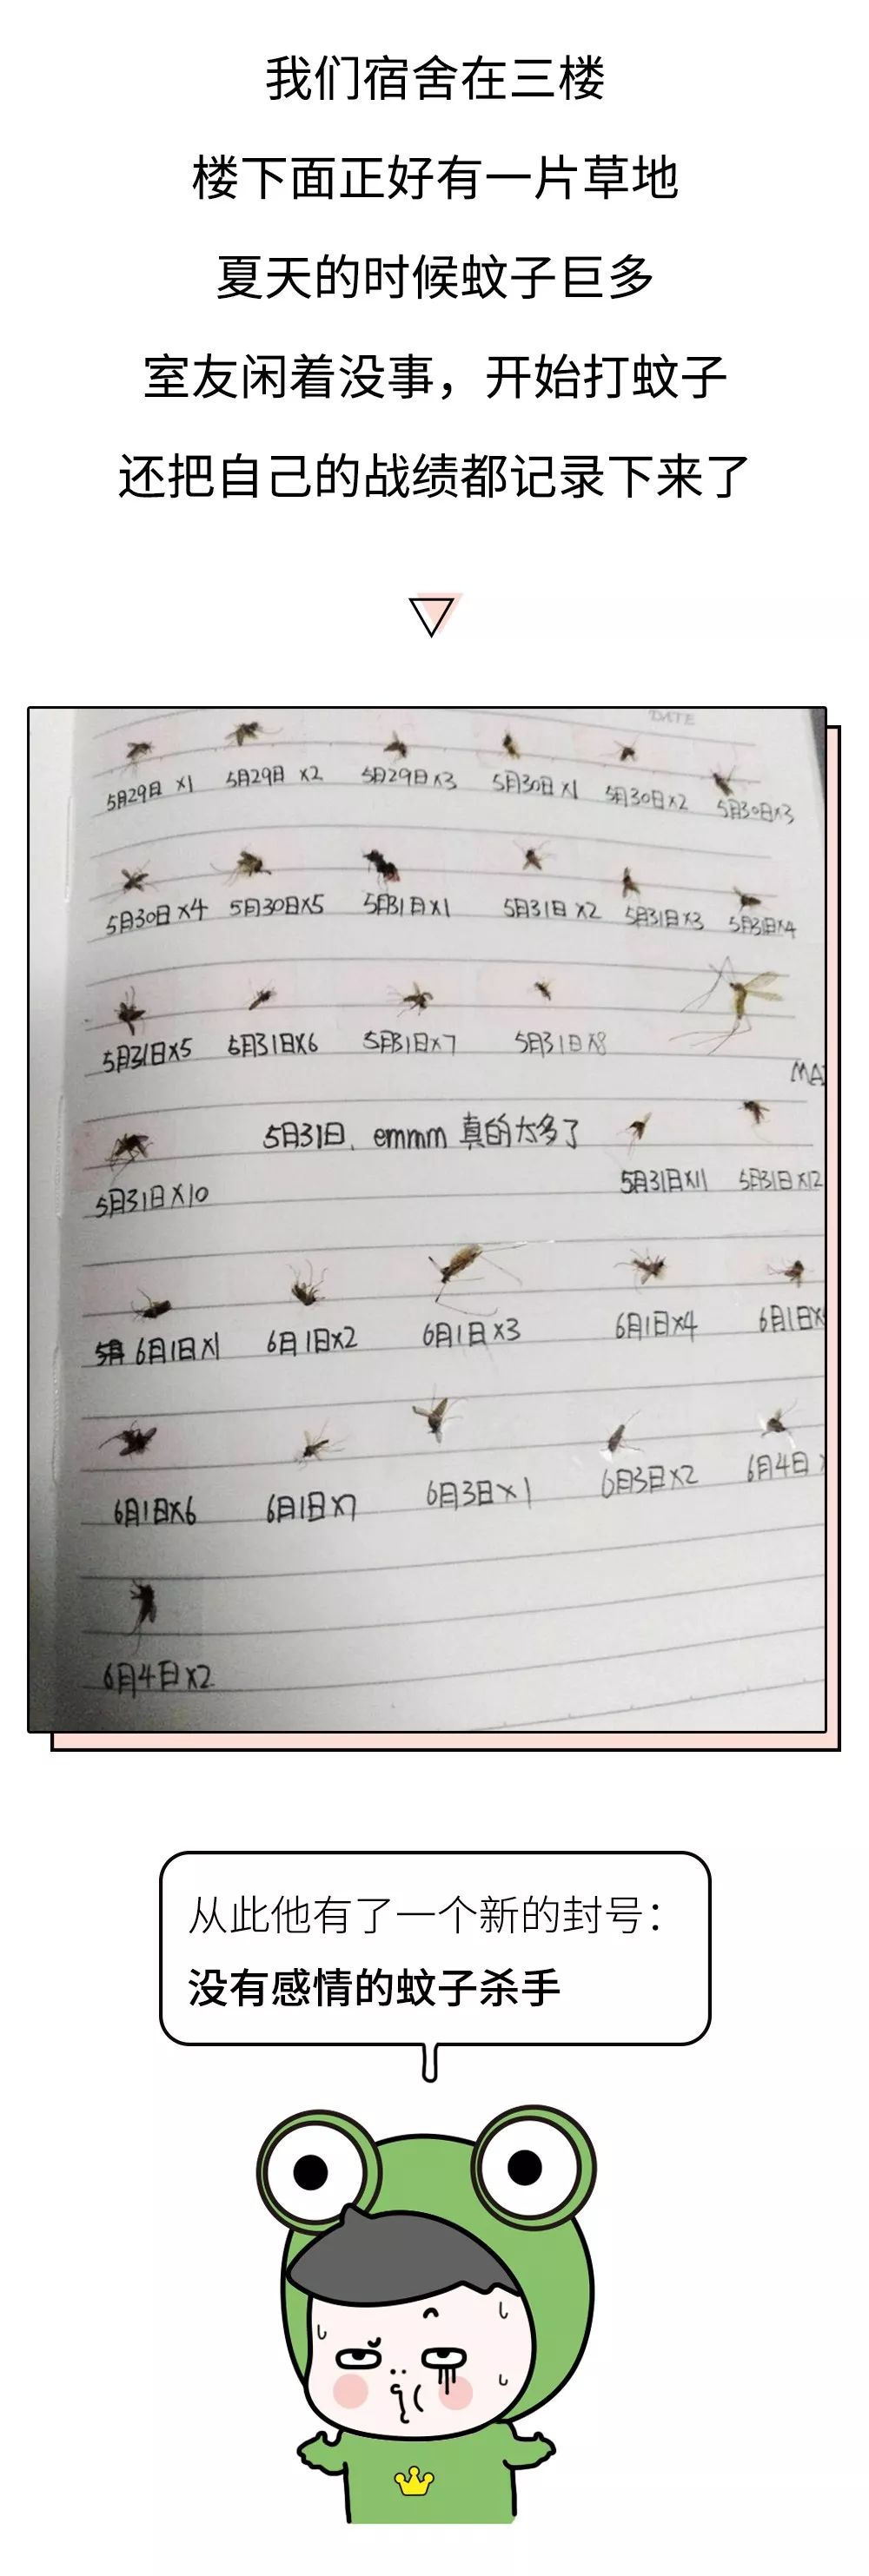 我们宿舍在三楼
楼下面正好有一片草地
夏天的时候蚊子巨多
室友闲着没事，开始打蚊子
还把自己的战绩都记录下来了
DATE
5月29日 x1 5月29日 x2 5月29日x3 5月30日x1 5月30日x2 5月30日x3
5月30日x4 5月30日x5 5月31日x1 5月31日x2 5月31日x3 5月31日x4
5月31日x5 5月31日x6 5月31日x7 5月31日x8
MA
5月31日x10 5月31日、emmm 真的太多了 5月31日x11 5月31日x12
6月1日x1 6月1日x2 6月1日x3 6月1日x4 6月1日x
6月1日x6 6月1日x7 6月3日x1 6月3日x2 6月4日
6月4日x2
从此他有了一个新的封号：
没有感情的蚊子杀手